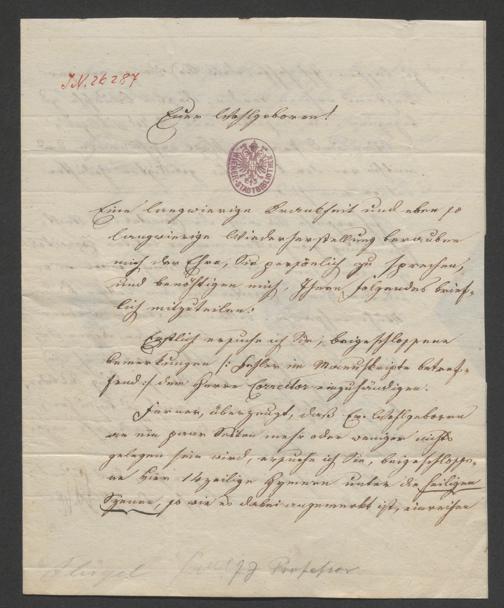 J.N. 26287
Euer Wohlgeboren!
WIENER STADTBIBLIOTHEK
Eine langwierige Krankheit und eben so
langwierige Wiederherstellung berauben
mich der Ehre, Sie persönlich zu sprechen,
und benöthigen mich, Ihnen folgendes brief-
lich mitzutheilen:
Erstlich ersuche ich Sie, beigeschlossene
Bemerkungen /: Fehler im Manuscripte betref-
fend :/ dem Herrn Corrector einzuhändigen.
Ferner, überzeugt, daß Ew. Wohlgeboren
an ein paar Seiten mehr oder weniger nichts
gelegen sein wird, ersuche ich Sie, beigeschlosse-
ne hier 14zeilige Hymnen unter die heiligen
Hymnen, so wie es dabei angemerkt ist, einreihen
Professor